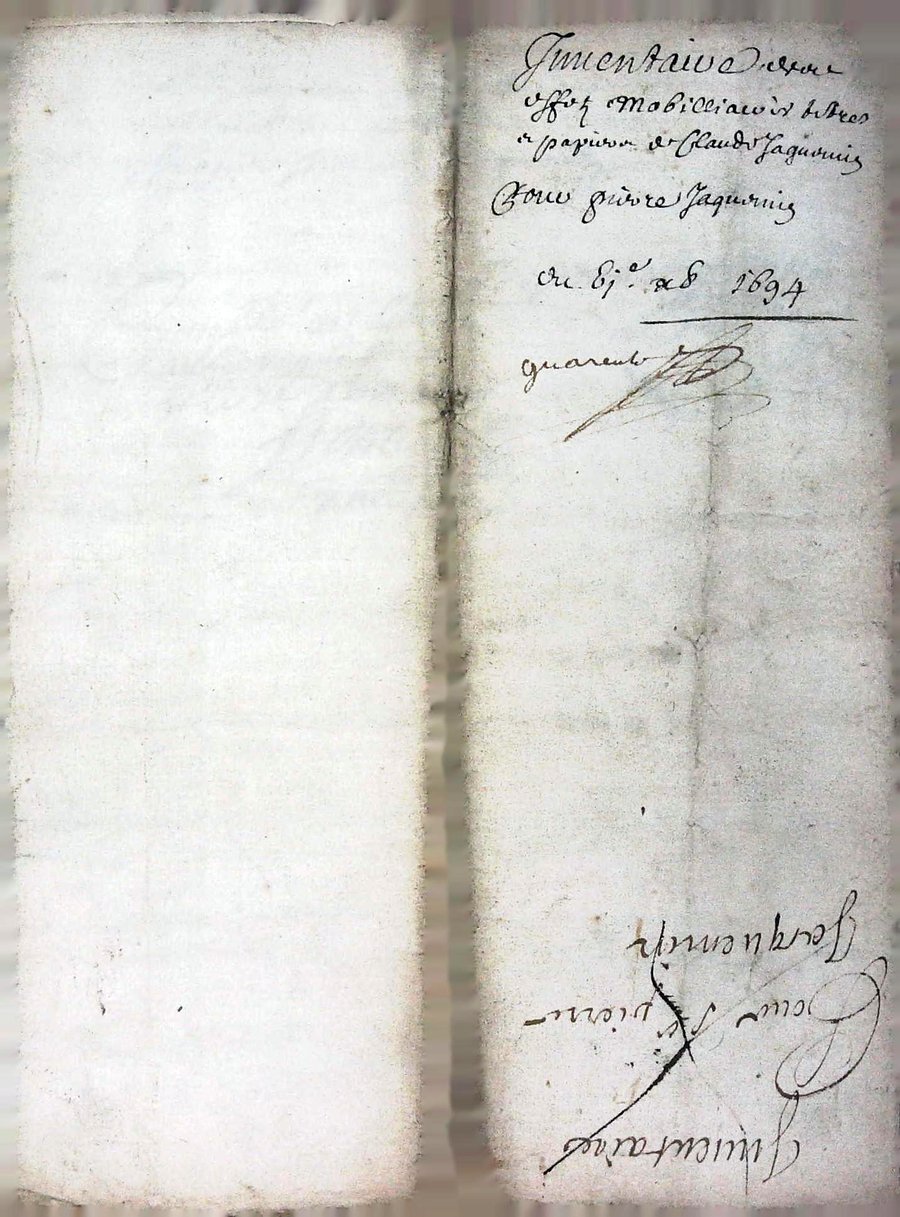 Inuentaire des
effetz Mobilliairs tiltres
et papiers de Claude Jaquemin
Pour pierre Jaquemin
du 1694
quarente
Inuentaire
Pour Sr pierre
Jacquemin